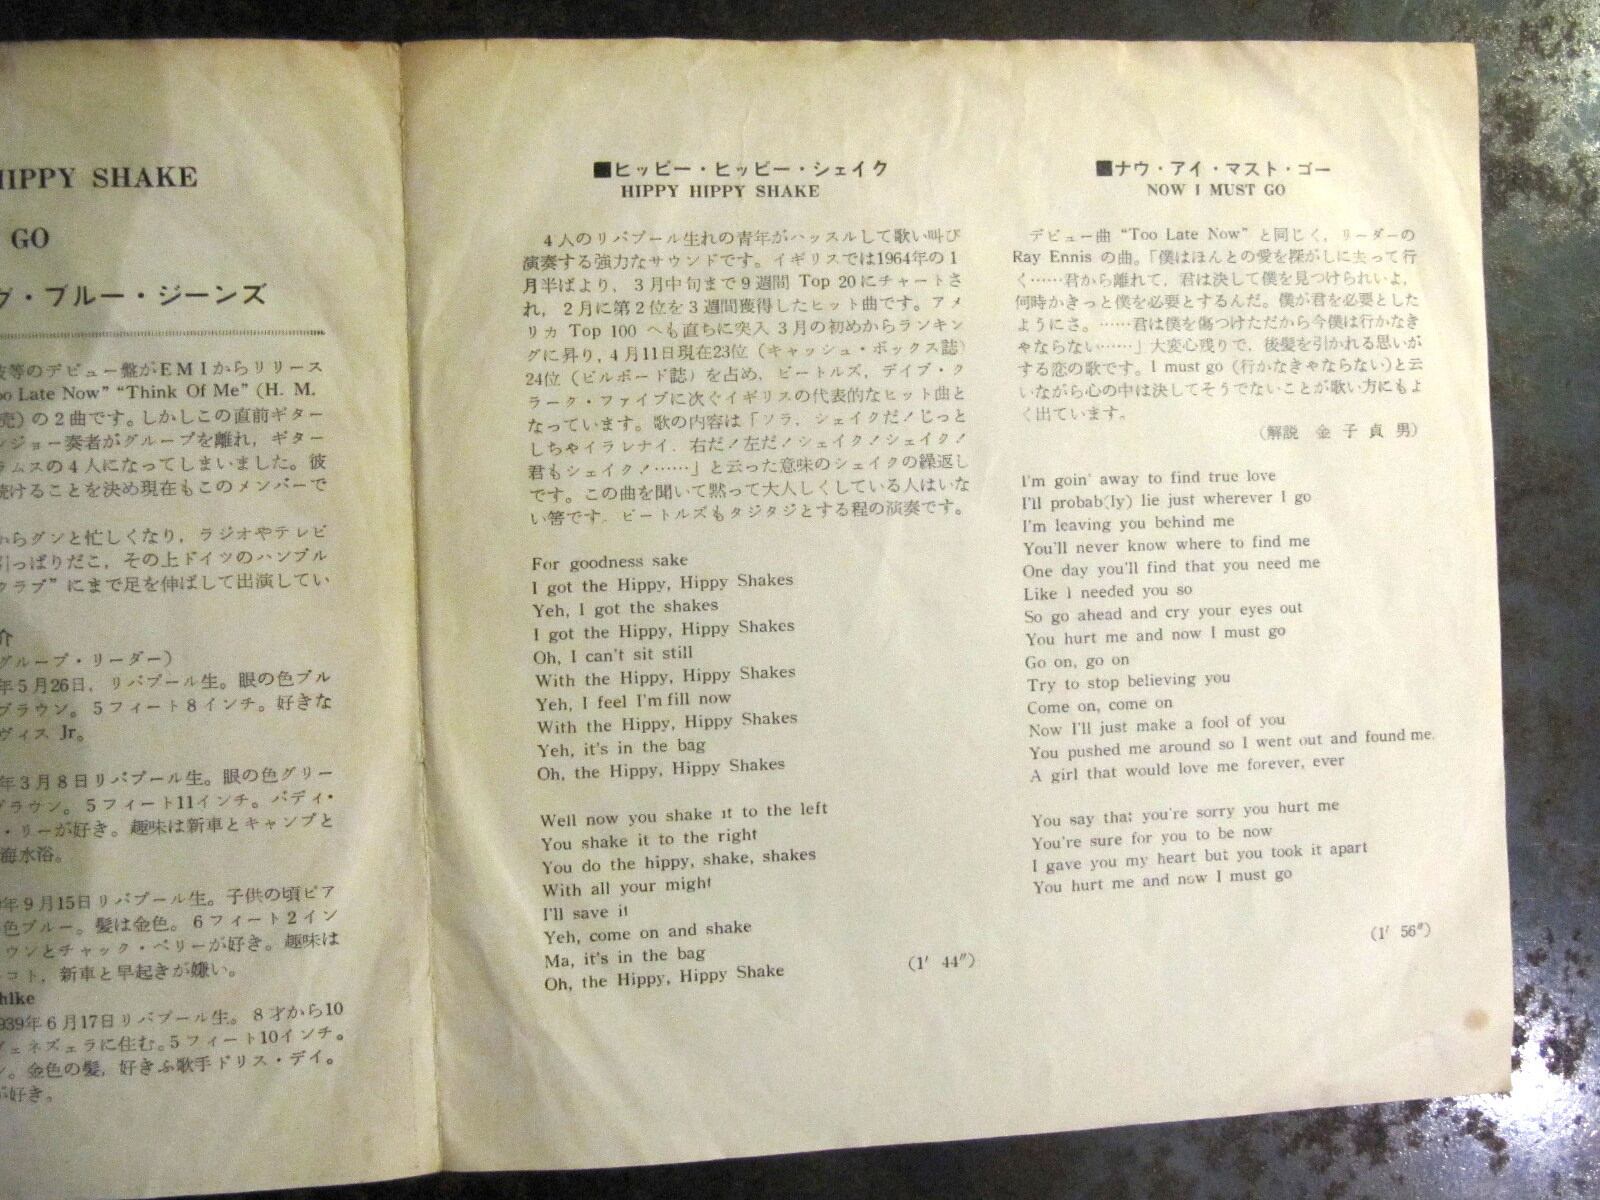 HIPPY SHAKE
GO
グ・ブルー・ジーンズ
彼等のデビュー盤がEMIからリリース
oo Late Now” “Think Of Me” (H. M.
売)の2曲です。しかしこの直前ギター
ンジョー奏者がグループを離れ，ギター
ラムスの4人になってしまいました。彼
続けることを決め現在もこのメンバーで
からグンと忙しくなり，ラジオやテレビ
引っぱりだこ，その上ドイツのハンブル
クラブ”にまで足を伸ばして出演してい
介
グループ・リーダー)
年5月26日，リバプール生。眼の色ブル
ブラウン。5フィート8インチ。好きな
ヴィス Jr。
年3月8日リバプール生。眼の色グリー
ブラウン。5フィート11インチ。バディ・
・リーが好き。趣味は新車とキャンプと
海水浴。
年9月15日リバプール生。子供の頃ピア
色ブルー。髪は金色。6フィート2イン
ウンとチャック・ベリーが好き。趣味は
コト，新車と早起きが嫌い。
hlke
939年6月17日リバプール生。8才から10
ヴェネズェラに住む。5フィート10インチ。
ン。金色の髪，好きふ歌手ドリス・デイ。
が好き。
■ヒッピー・ヒッピー・シェイク
HIPPY HIPPY SHAKE
4人のリバプール生れの青年がハッスルして歌い叫び
演奏する強力なサウンドです。イギリスでは1964年の1
月半ばより，3月中旬まで9週間 Top 20にチャートさ
れ，2月に第2位を3週間獲得したヒット曲です。アメ
リカ Top 100 へも直ちに突入3月の初めからランキン
グに昇り,4月11日現在23位（キャッシュ・ボックス誌）
24位（ビルボード誌）を占め，ビートルズ，デイブ・ク
ラーク・ファイブに次ぐイギリスの代表的なヒット曲と
なっています。歌の内容は「ソラ，シェイクだ！じっと
しちゃイラレナイ．右だ！左だ！シェイク！シェイク！
君もシェイク！……」と云った意味のシェイクの繰返し
です。この曲を聞いて黙って大人しくしている人はいな
い筈です。ビートルズもタジタジとする程の演奏です。
For goodness sake
I got the Hippy, Hippy Shakes
Yeh, I got the shakes
I got the Hippy, Hippy Shakes
Oh, I can't sit still
With the Hippy, Hippy Shakes
Yeh, I feel I'm fill now
With the Hippy, Hippy Shakes
Yeh, it's in the bag
Oh, the Hippy, Hippy Shakes
Well now you shake it to the left
You shake it to the right
You do the hippy, shake, shakes
With all your might
I'll save it
Yeh, come on and shake
Ma, it's in the bag
Oh, the Hippy, Hippy Shake
(1′ 44″)
■ナウ・アイ・マスト・ゴー
NOW I MUST GO
デビュー曲 “Too Late Now” と同じく，リーダーの
Ray Ennis の曲。「僕はほんとの愛を探がしに去って行
く……君から離れて，君は決して僕を見つけられいよ，
何時かきっと僕を必要とするんだ。僕が君を必要とした
ようにさ。……君は僕を傷つけただから今僕は行かなき
ゃならない……」大変心残りで，後髪を引かれる思いが
する恋の歌です。I must go (行かなきゃならない)と云
いながら心の中は決してそうでないことが歌い方にもよ
く出ています。
（解説 金子貞男）
I'm goin' away to find true love
I'll probab(ly) lie just wherever I go
I'm leaving you behind me
You'll never know where to find me
One day you'll find that you need me
Like I needed you so
So go ahead and cry your eyes out
You hurt me and now I must go
Go on, go on
Try to stop believing you
Come on, come on
Now I'll just make a fool of you
You pushed me around so I went out and found me.
A girl that would love me forever, ever
You say that you're sorry you hurt me
You're sure for you to be now
I gave you my heart but you took it apart
You hurt me and now I must go
(1′ 56″)